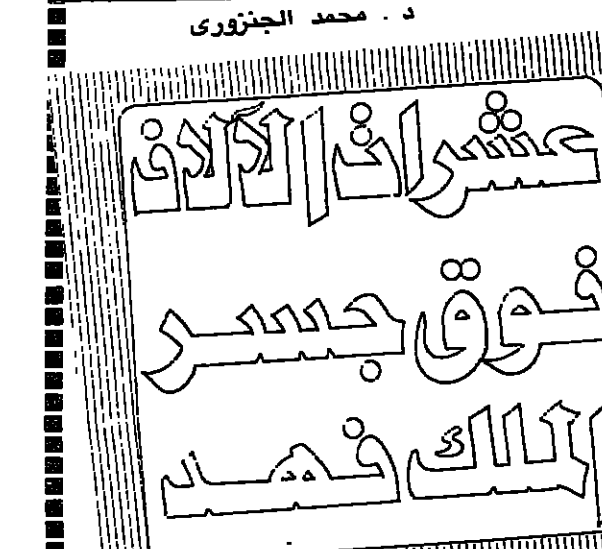 د . محمد الجنزورى
عشرات الآلاف
فوق جسر
الملك فهد